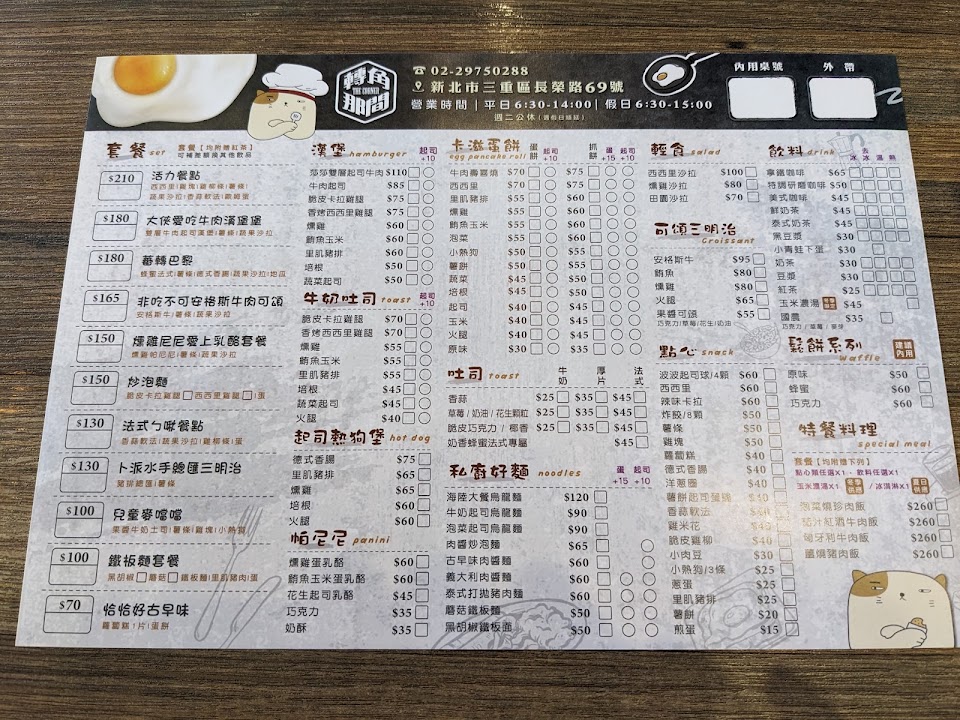 轉角
THE CORNER
那間
☎ 02-29750288
新北市三重區長榮路69號
營業時間 | 平日6:30-14:00 | 假日6:30-15:00
週二公休
內用桌號
外帶
套餐 set
套餐【均附贈紅茶】
可補差額換其他飲品
$210 活力餐點
西西里|雞塊|雞柳條|薯條|
蔬果沙拉|香蒜軟法|歐姆蛋
$180 大俠愛吃牛肉漢堡堡
雙層牛肉起司漢堡|薯條|蔬果沙拉
$180 蕃轉巴黎
蜂蜜法式|薯條|德式香腸|蔬果沙拉|地瓜
$165 非吃不可安格斯牛肉可頌
安格斯牛|薯條|蔬果沙拉
$150 燻雞尼尼愛上乳酪套餐
燻雞帕尼尼|薯條|蔬果沙拉
$150 炒泡麵
脆皮卡拉雞腿 西西里雞腿 |蛋
$130 法式ㄅ啾餐點
香蒜軟法|蔬果沙拉|雞柳條|蛋
$130 卜派水手總匯三明治
豬排總匯|薯條
$100 兒童麥噹噹
果醬牛奶土司|薯條|雞塊|小熱狗
$100 鐵板麵套餐
黑胡椒 蘑菇 鐵板麵|里肌豬肉|蛋
$70 恰恰好古早味
蘿蔔糕1片|蛋餅
漢堡 hamburger 起司+10
莎莎雙層起司牛肉 $110
牛肉起司 $85
脆皮卡拉雞腿 $75
香烤西西里雞腿 $75
燻雞 $60
鮪魚玉米 $60
里肌豬排 $60
培根 $50
蔬菜起司 $50
牛奶吐司 toast 起司+10
脆皮卡拉雞腿 $70
香烤西西里雞腿 $70
燻雞 $55
鮪魚玉米 $55
里肌豬排 $55
培根 $45
蔬菜起司 $45
火腿 $40
起司熱狗堡 hot dog
德式香腸 $75
里肌豬排 $65
燻雞 $65
培根 $60
火腿 $60
帕尼尼 panini
燻雞蛋乳酪 $60
鮪魚玉米蛋乳酪 $60
花生起司乳酪 $45
巧克力 $35
奶酥 $35
卡滋蛋餅
egg pancake roll
蛋餅 起司+10 抓餅 蛋+15 起司+10
牛肉壽喜燒 $70 $75
西西里 $70 $75
里肌豬排 $55 $60
燻雞 $55 $60
鮪魚玉米 $55 $60
泡菜 $55 $60
小熱狗 $50 $55
薯餅 $50 $55
蔬菜 $45 $50
培根 $45 $50
起司 $40 $45
玉米 $40 $45
火腿 $40 $45
原味 $30 $35
吐司 toast 牛奶 厚片 法式
香蒜 $25 $35 $45
草莓/奶油/花生顆粒 $25 $35 $45
脆皮巧克力/椰香 $25 $35 $45
奶香蜂蜜法式專屬 $45
私廚好麵 noodles 蛋+15 起司+10
海陸大餐烏龍麵 $120
牛奶起司烏龍麵 $90
泡菜起司烏龍麵 $90
肉醬炒泡麵 $65
古早味肉醬麵 $60
義大利肉醬麵 $60
泰式打拋豬肉麵 $60
蘑菇鐵板麵 $50
黑胡椒鐵板面 $50
輕食 salad
西西里沙拉 $100
燻雞沙拉 $80
田園沙拉 $70
可頌三明治
Croissant
安格斯牛 $95
鮪魚 $80
燻雞 $80
火腿 $65
果醬可頌 $55
巧克力/草莓/花生/奶油
點心 snack
波波起司球/4顆 $60
西西里 $60
辣味卡拉 $60
炸餃/8顆 $50
薯條 $50
雞塊 $50
蘿蔔糕 $40
德式香腸 $40
洋蔥圈 $40
薯餅起司蛋 $40
香蒜軟法 $40
雞米花 $40
脆皮雞柳 $40
小肉豆 $30
小熱狗/3條 $25
蔥蛋 $25
里肌豬排 $25
薯餅 $20
煎蛋 $15
飲料 drink
去冰 冰 溫 熱
拿鐵咖啡 $65
特調研磨咖啡 $50
美式咖啡 $45
鮮奶茶 $45
泰式奶茶 $45
黑豆漿 $30
小青蛙下蛋 $30
奶茶 $30
豆漿 $30
紅茶 $25
玉米濃湯 $45
國農 $35
巧克力/草莓/麥芽
鬆餅系列 建議內用
Waffle
原味 $50
蜂蜜 $60
巧克力 $60
特餐料理
special meal
套餐【均附贈下列】
點心類任選X1、飲料任選X1
玉米濃湯X1 冬季供應 /冰淇淋X1 夏日供應
泡菜燒珍肉飯 $260
茄汁紅酒牛肉飯 $260
匈牙利牛肉飯 $260
醬燒豬肉飯 $260